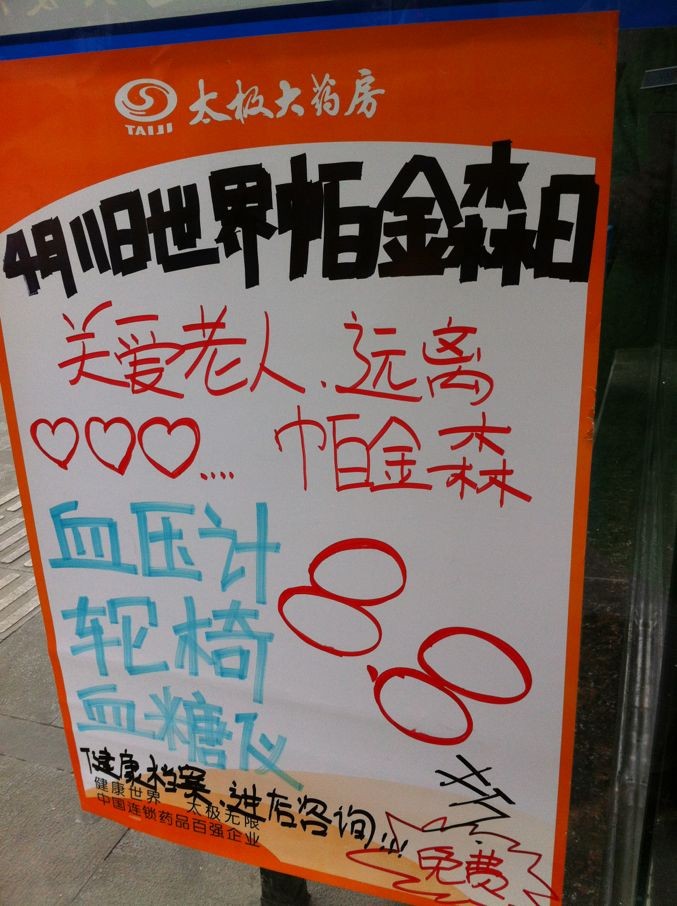 TAIJI 太极大药房
4月11日世界帕金森日
关爱老人、远离
帕金森
血压计
轮椅
血糖仪
健康档案
进店咨询!!!
健康世界 太极无限
中国连锁药品百强企业
免费